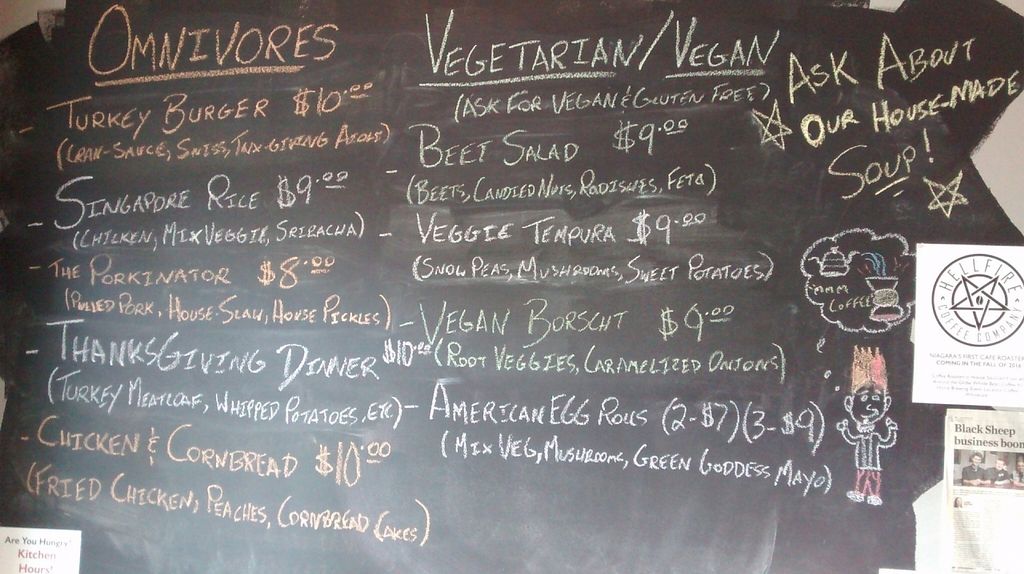 OMNIVORES
- TURKEY BURGER $10.00
(CRAN-SAUCE, SWISS, TNX-GIVING AIOLI)
- SINGAPORE RICE $9.00
(CHICKEN, MIX VEGGIE, SRIRACHA)
- THE PORKINATOR $8.00
(PULLED PORK, HOUSE-SLAW, HOUSE PICKLES)
- THANKSGIVING DINNER $10.00
(TURKEY MEATLOAF, WHIPPED POTATOES, ETC)
- CHICKEN & CORNBREAD $10.00
(FRIED CHICKEN, PEACHES, CORNBREAD CAKES)
VEGETARIAN/VEGAN
(ASK FOR VEGAN & GLUTEN FREE)
- BEET SALAD $9.00
(BEETS, CANDIED NUTS, RADISHES, FETA)
- VEGGIE TEMPURA $9.00
(SNOW PEAS, MUSHROOMS, SWEET POTATOES)
- VEGAN BORSCHT $9.00
(ROOT VEGGIES, CARAMELIZED ONIONS)
- AMERICAN EGG ROLLS (2-$7)(3-$9)
(MIX VEG, MUSHROOMS, GREEN GODDESS MAYO)
ASK ABOUT
OUR HOUSE-MADE
SOUP!
mmm
COFFEE
HELLFIRE
COFFEE COMPANY
NIAGARA'S FIRST CAFE ROASTER
COMING IN THE FALL OF
Black Sheep
business boom
Are You Hungry?
Kitchen
Hours!